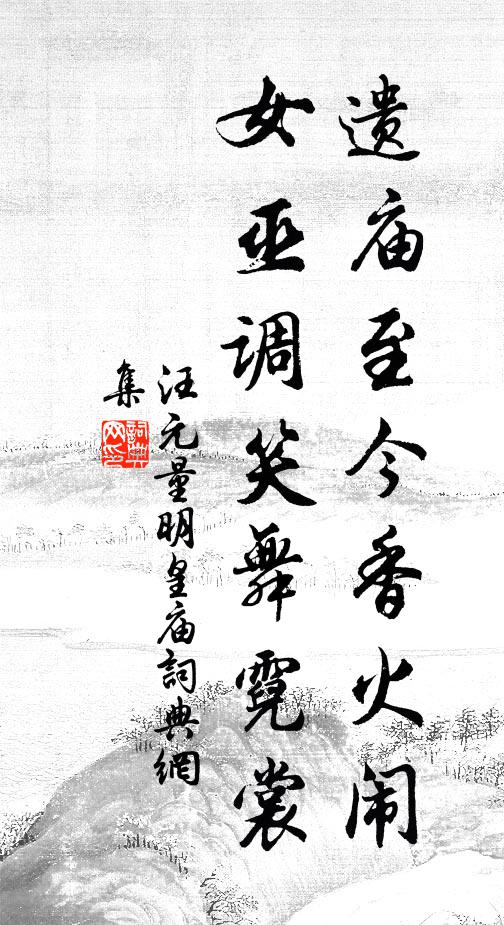 遗庙至今香火闹
女巫调笑舞霓裳
汪元量明皇庙詞典網
集